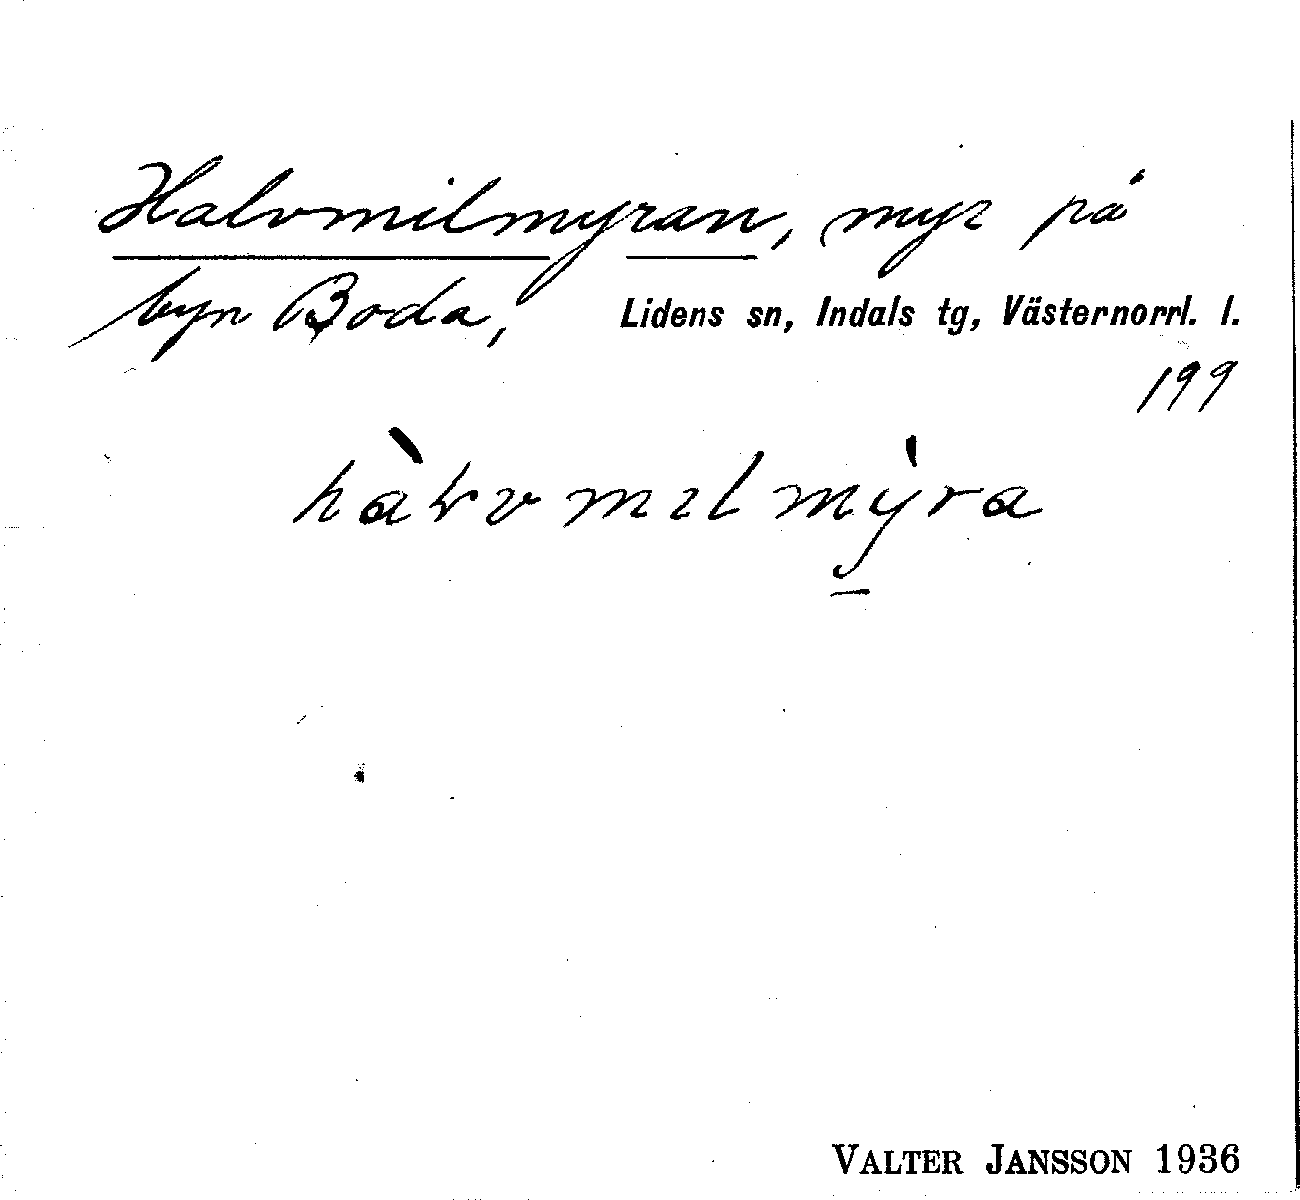 Halvmilmyran, myr på
byn Boda, Lidens sn, Indals tg, Västernorrl. l.
199
VALTER JANSSON 1936